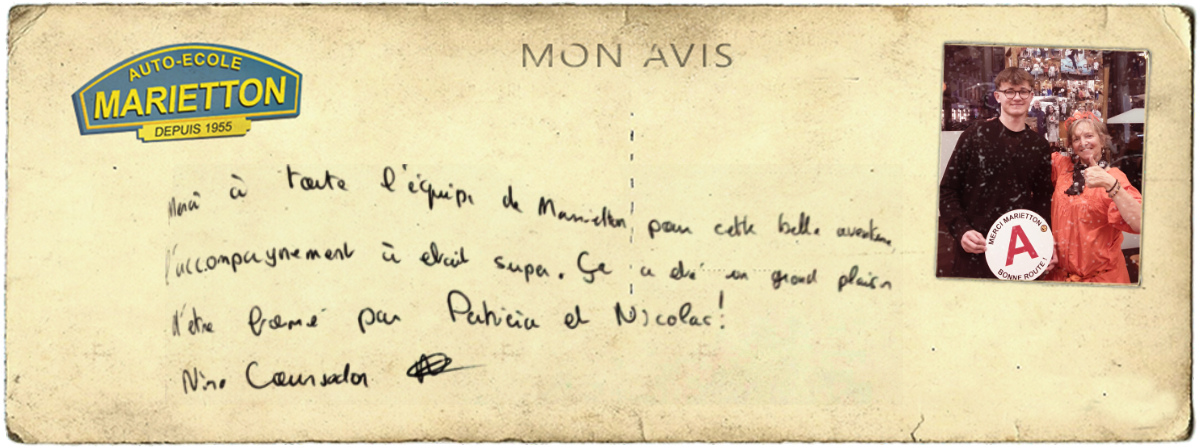 AUTO-ECOLE
MARIETTON
DEPUIS 1955
MON AVIS
Merci à toute l'équipe de Marietton pour cette belle aventure
l'accompagnement à etait super. Ça a été un grand plaisir
d'être formé par Patricia et Nicolas!
Nino
MERCI MARIETTON
A
BONNE ROUTE !